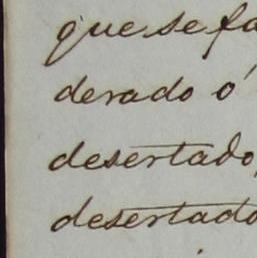 que se fa
derado ó
desertado,
desertado